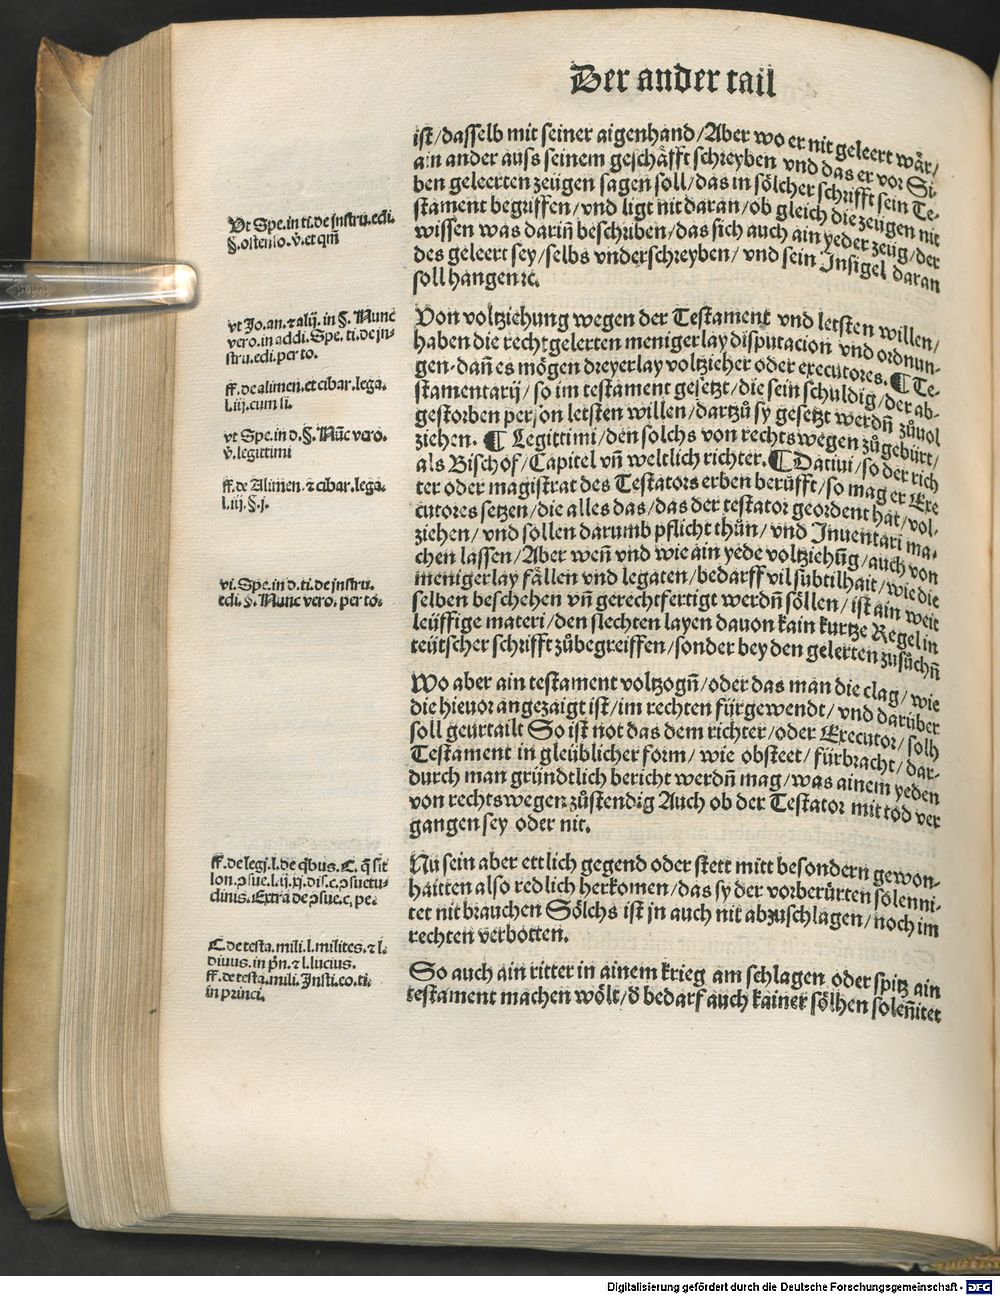 Der ander tail
ist/dasselb mit seiner aigenhand/Aber wo er nit geleert wår/
ain ander auss seinem geschäfft schreyben vnd das er vor Si-
ben geleerten zeügen sagen soll/das in sölcher schrifft sein Te-
stament begriffen/vnd ligt nit daran/ob gleich die zeügen nit
wissen was dariñ beschriben/das sich auch ain yeder zeüg/der
des geleert sey/selbs vnderschreyben/vnd sein Insigel daran
soll hangen ⁊c.
Vt Spe. in ti. de instru. edi.
§. ostenso. v̄. et qm̄
Von voltziehung wegen der Testament vnd letsten willen/
haben die rechtgelerten menigerlay disputacion vnd ordnun-
gen. dañ es mögen dreyerlay voltzieher oder executores. ¶ Te-
stamentarij/so im testament gesetzt/die sein schuldig/der ab-
gestorben person letsten willen/dartzů sy gesetzt werdñ zůuol
ziehen. ¶ Legittimi/den solchs von rechtswegen zůgebürt/
als Bischof/Capitel vñ weltlich richter. ¶ Datiui/so der rich
ter oder magistrat des Testators erben berůfft/so mag er Exe
cutores setzen/die alles das/das der testator geordent hat/vol-
ziehen/vnd sollen darumb pflicht thůn/vnd Inuentari ma-
chen lassen/Aber weñ vnd wie ain yede voltziehũg/auch von
menigerlay fällen vnd legaten/bedarff vil subtilhait/wie die
selben beschehen vñ gerechtfertigt werdñ söllen/ist ain weit
leüffige materi/den slechten layen dauon kain kurtze Regel in
teütscher schrifft zůbegreiffen/sonder bey den gelerten zusůchñ
vt Jo. an. ⁊ alij. in §. Nunc
vero. in addi. Spe. ti. de in-
stru. edi. per to.
ff. de alimen. et cibar. lega.
l. iij. cum si.
vt Spe. in d. §. Nũc vero.
v̄. legittimi
ff. de Alimen. ⁊ cibar. lega.
l. iij. §. j.
vt. Spe. in d. ti. de instru.
edi. §. Nunc vero. per to.
Wo aber ain testament voltzogñ/oder das man die clag/wie
die hieuor angezaigt ist/im rechten fürgewendt/vnd darüber
soll geurtailt So ist not das dem richter/oder Executor/solh
Testament in gleüblicher form/wie obsteet/fürbracht/dar-
durch man gründtlich bericht werdñ mag/was ainem yeden
von rechtswegen zůstendig Auch ob der Testator mit tod ver
gangen sey oder nit.
Nũ sein aber ettlich gegend oder stett mitt besondern gewon-
haitten also redlich herkomen/das sy der vorberürten solenni-
tet nit brauchen Sölchs ist jn auch nit abzuschlagen/noch im
rechten verbotten.
ff. de leg. j. l. de q̄bus. C. q̄ sit
lon. ꝯsue. l. ij. xj. dis. c. ꝯsuetu-
dinis. Extra de ꝯsue. c.
So auch ain ritter in ainem krieg am schlagen oder spitz ain
testament machen wölt/ð bedarf auch kainer sölhen soleñitet
C. de testa. mili. l. milites. ⁊ l.
diuus. in pñ. ⁊ l. lucius.
ff. de testa. mili. Insti. eo. ti.
in princi.
Digitalisierung gefördert durch die Deutsche Forschungsgemeinschaft - DFG